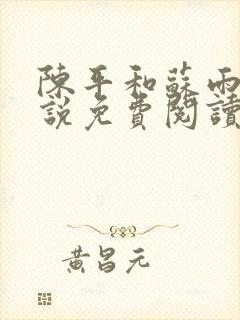 陳平和蘇雨
說免費閱讀
黃昌元